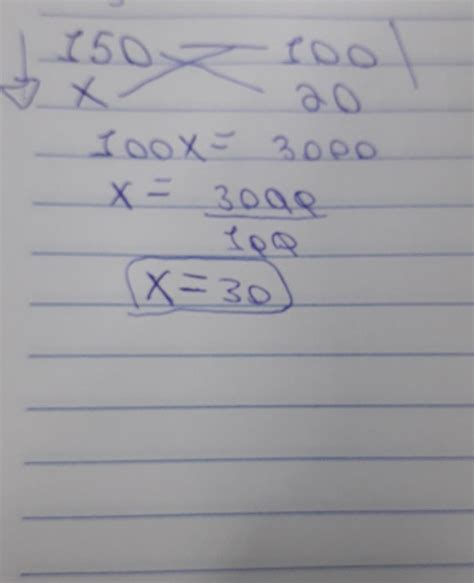 150 100
x 20
100x = 3000
x = 3000
100
x = 30